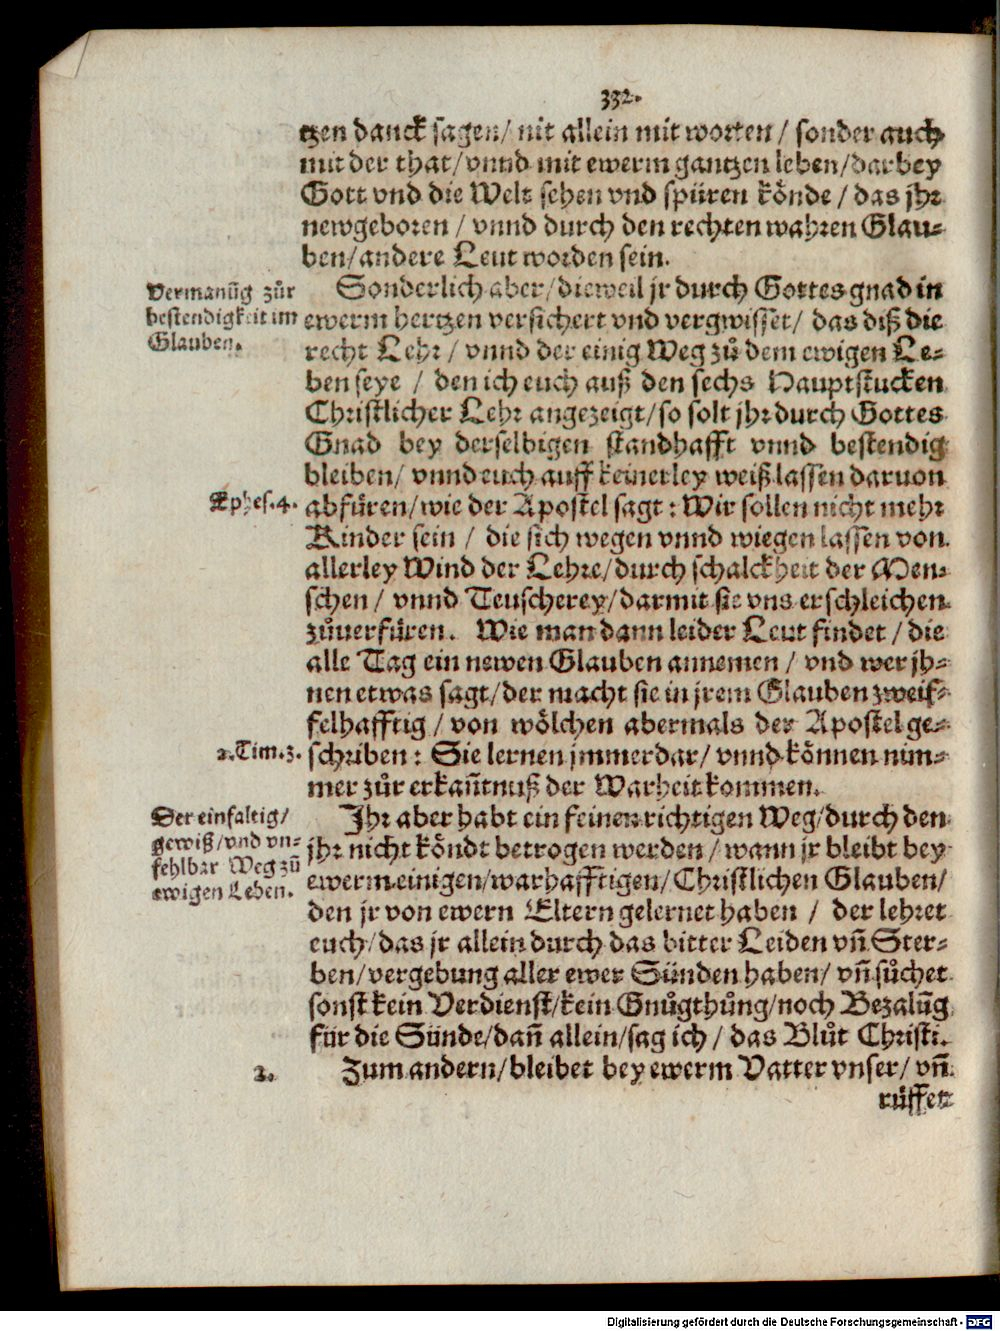 332.
tzen danck sagen/ nit allein mit worten / sonder auch
mit der that/ vnnd mit ewerm gantzen leben/ darbey
Gott vnd die Welt sehen vnd spüren könde / das jhr
newgeboren / vnnd durch den rechten wahren Glau-
ben/ andere Leut worden sein.
Vermanũg zůr
bestendigkeit im
Glauben.
Sonderlich aber/ dieweil jr durch Gottes gnad in
ewerm hertzen versichert vnd vergwisset/ das diß die
recht Lehr / vnnd der einig Weg zů dem ewigen Le-
ben seye / den ich euch auß den sechs Hauptstucken
Christlicher Lehr angezeigt/ so solt jhr durch Gottes
Gnad bey derselbigen standhafft vnnd bestendig
bleiben/ vnnd euch auff keinerley weiß lassen daruon
Ephes.4.
abfüren/ wie der Apostel sagt : Wir sollen nicht mehr
Kinder sein / die sich wegen vnnd wiegen lassen von
allerley Wind der Lehre/ durch schalckheit der Men-
schen / vnnd Teuscherey/ darmit sie vns erschleichen
zůuerfüren. Wie man dann leider Leut findet / die
alle Tag ein newen Glauben annemen / vnd wer jh-
nen etwas sagt/ der macht sie in jrem Glauben zweif-
felhafftig / von wölchen abermals der Apostel ge-
2.Tim.3.
schriben : Sie lernen jmmerdar/ vnnd können nim-
mer zůr erkañtnuß der Warheit kommen.
Der einfaltig/
gewiß/ vnd vn-
fehlbar Weg zů
ewigen Leben.
Jhr aber habt ein feinen richtigen Weg/ durch den
jhr nicht köndt betrogen werden / wann jr bleibt bey
ewerm einigen/ warhafftigen/ Christlichen Glauben/
den jr von ewern Eltern gelernet haben / der lehret
euch/ das jr allein durch das bitter Leiden vñ Ster-
ben/ vergebung aller ewer Sünden haben/ vñ sůchet
sonst kein Verdienst/ kein Gnůgthůng/ noch Bezalũg
für die Sünde/ dañ allein/ sag ich / das Blůt Christi.
2.
Zum andern/ bleibet bey ewerm Vatter vnser/ vñ
růffet
Digitalisierung gefördert durch die Deutsche Forschungsgemeinschaft - DFG